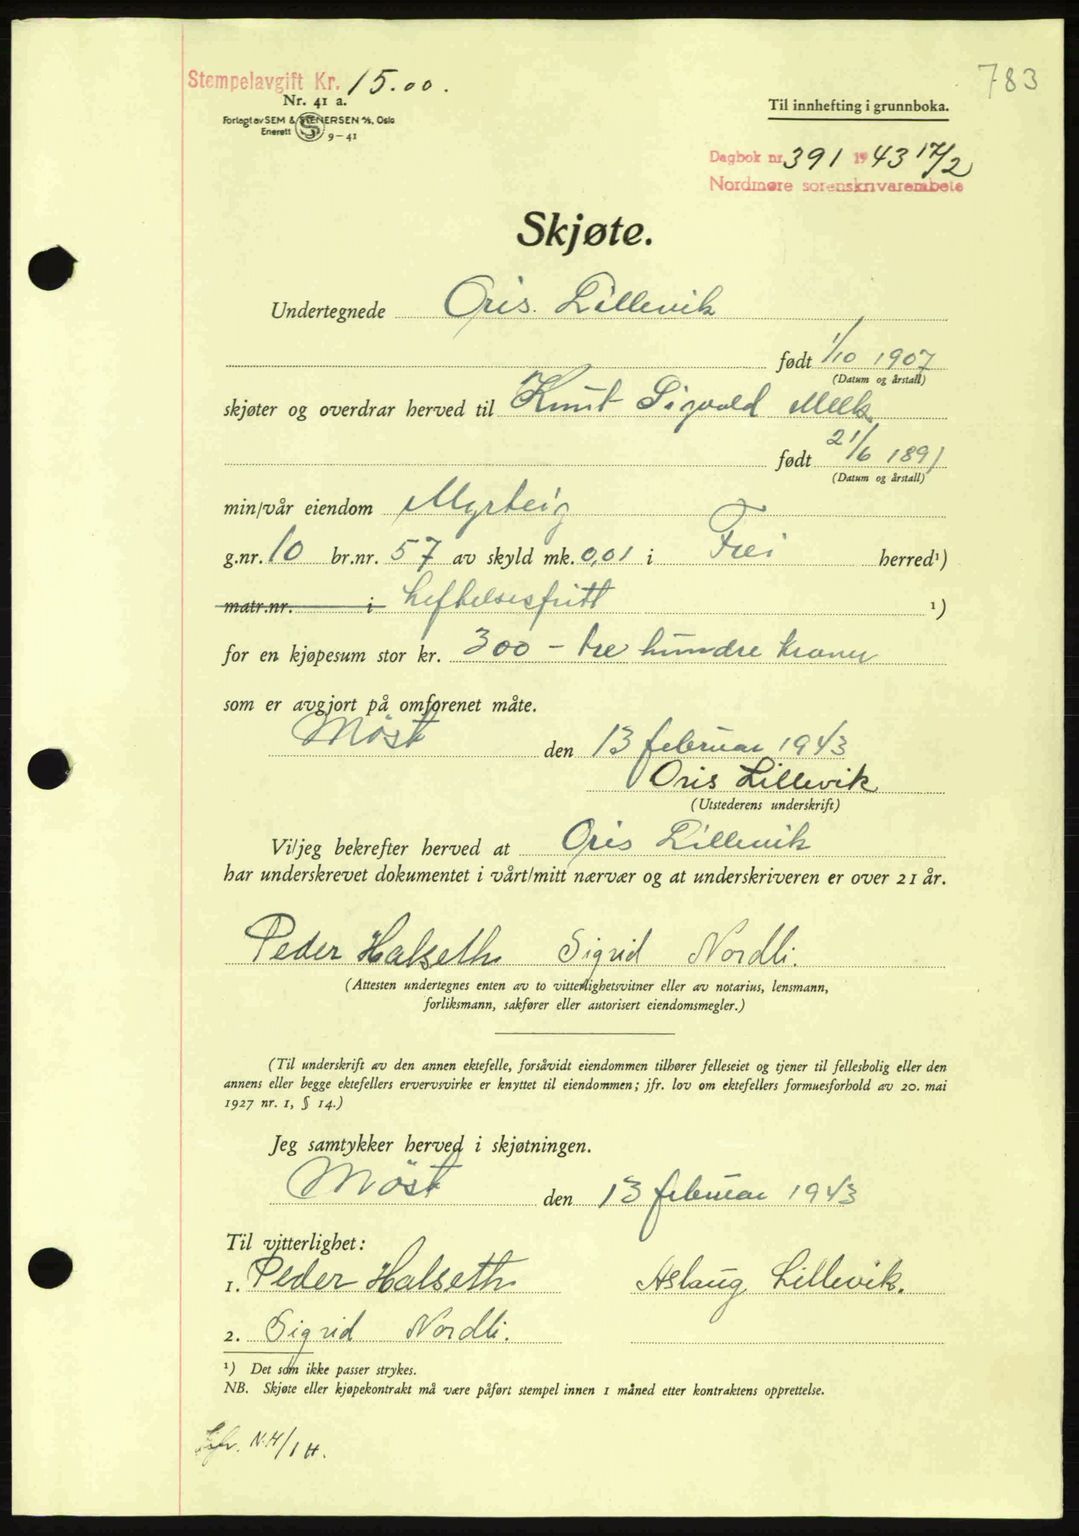 783
Stempelavgift Kr. 15.00.
Nr. 41 a.
Forlagt av SEM & STENERSEN A/S, Oslo
Enerett S 9-41
Til innhefting i grunnboka.
Dagbok nr. 391 1943 17/2
Nordmøre sorenskrivarembete
Skjøte.
Undertegnede Oris. Lillevik
født 1/10 1907
(Datum og årstall)
skjøter og overdrar herved til Knut Sigvald Melk
født 21/6 1891
(Datum og årstall)
min/vår eiendom Myrteig
g.nr. 10 br.nr. 57 av skyld mk. 0,01 i Frei herred¹)
matr.nr. i heftelsesfritt ¹)
for en kjøpesum stor kr. 300 - tre hundre kroner
som er avgjort på omforenet måte.
Møst den 13 februar 1943
Oris Lillevik
(Utstederens underskrift)
Vi/jeg bekrefter herved at Oris Lillevik
har underskrevet dokumentet i vårt/mitt nærvær og at underskriveren er over 21 år.
Peder Halseth Sigrid Nordli.
(Attesten undertegnes enten av to vitterlighetsvitner eller av notarius, lensmann,
forliksmann, sakfører eller autorisert eiendomsmegler.)
(Til underskrift av den annen ektefelle, forsåvidt eiendommen tilhører felleseiet og tjener til fellesbolig eller den
annens eller begge ektefellers ervervsvirke er knyttet til eiendommen; jfr. lov om ektefellers formuesforhold av 20. mai
1927 nr. 1, § 14.)
Jeg samtykker herved i skjøtningen.
Møst den 13 februar 1943
Til vitterlighet:
1. Peder Halseth Aslaug Lillevik.
2. Sigrid Nordli.
¹) Det som ikke passer strykes.
NB. Skjøte eller kjøpekontrakt må være påført stempel innen 1 måned etter kontraktens opprettelse.